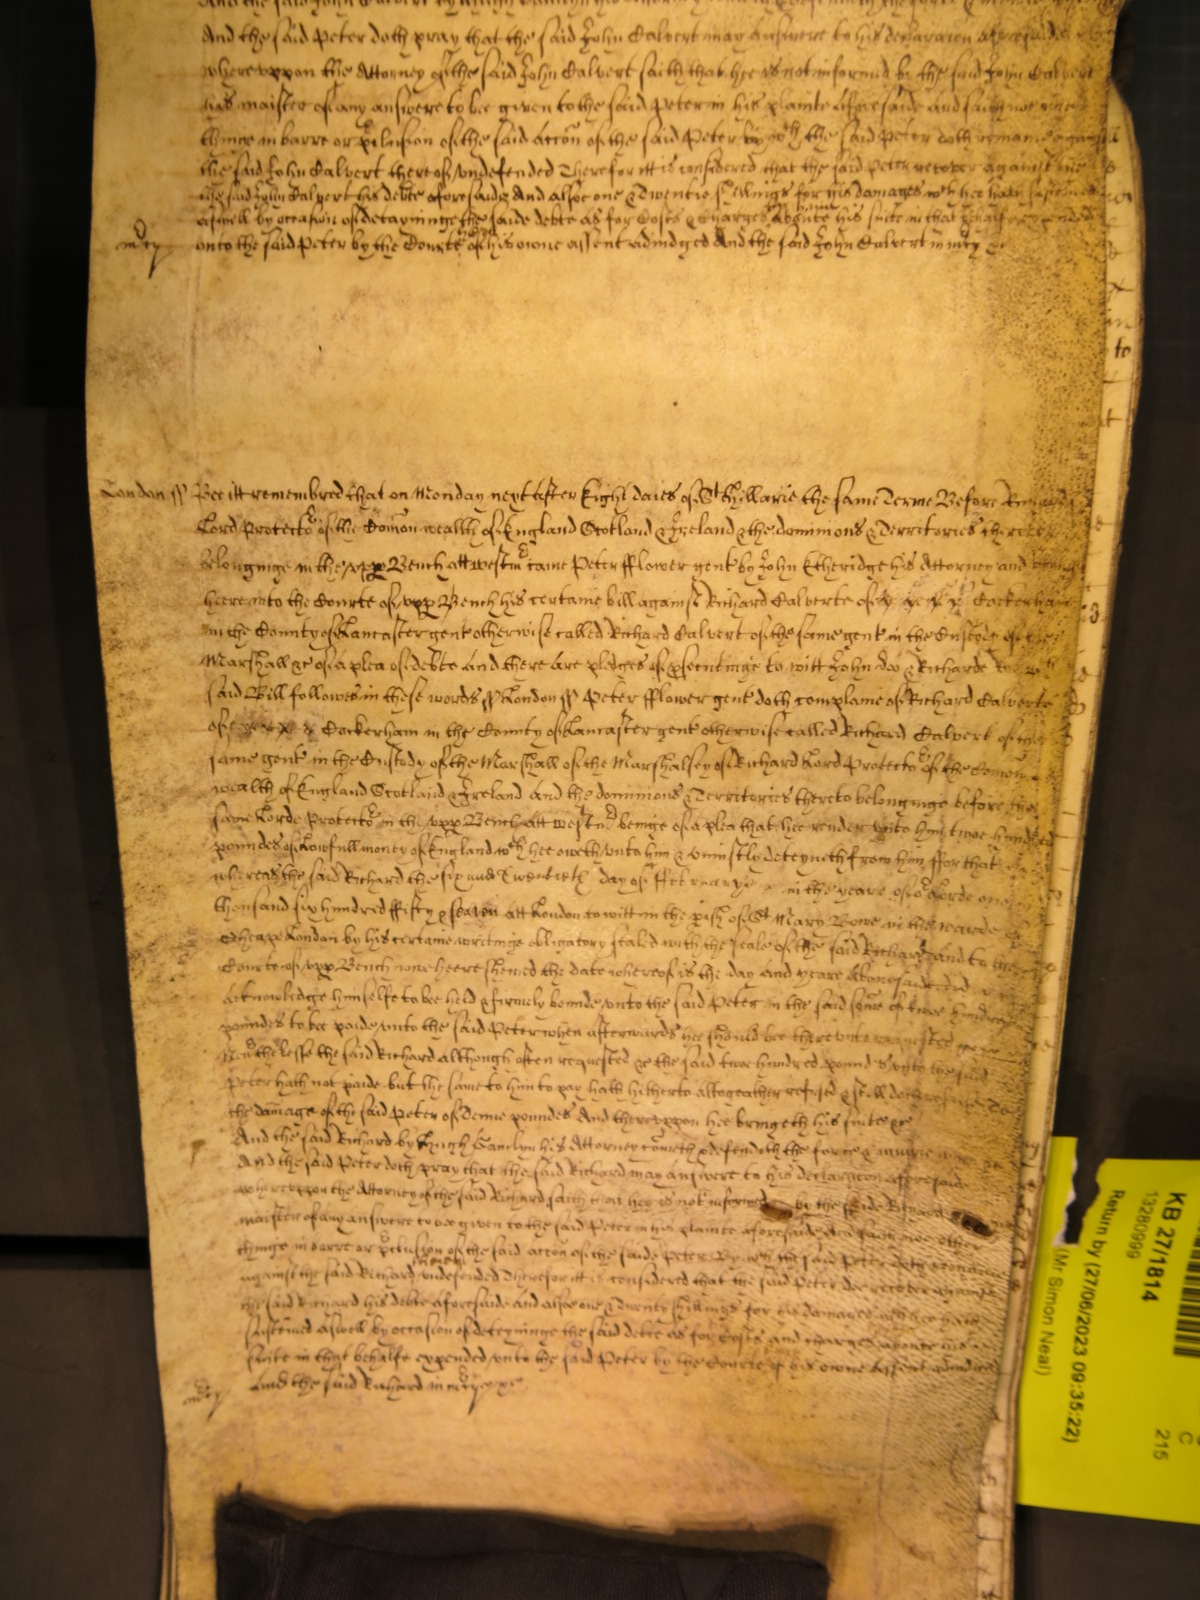 And the said Peter doth pray that the said John Calvert may answere to his declaracon aforesaid
whereuppon the Attorney of the said John Calvert saith that hee is not informed by the said John Calvert
his maister of any answere to bee given to the said Peter in his plainte aforesaide and saith noe
thinge in barre or p'clusion of the said accon of the said Peter by wch the said Peter doth remaine against
the said John Calvert thereof undefended Therefore itt is considered that the said Peter recover against the
the said John Calvert his debte aforesaide And alsoe one & Twentie shillings for his damages wch hee hath susteined
aswell by occasion of detayninge the saide debte as for Costs & Charges aboute his suite in that behalf expended
m'cy unto the said Peter by the Courte of his owne assent adiudged And the said John Calvert in m'cy &c
London ss Bee itt remembred that on Monday next after Eight daies of St Hillarie the same Terme Before Richard
Lord Protector of the Comon wealth of England Scotland & Ireland & the dominions & Territories thereto
belonginge in the upp Bench att Westm' came Peter fflower gent by John Etheridge his Attorney and
heere into the Courte of upp Bench his certaine bill against Richard Calverte of Cockerham
in the County of Lancaster gent otherwise called Richard Calvert of the same gent in the Custody of the
Marshall &c of a plea of debte And there are pledges of p'sentinge to witt John doo & Richarde
said Bill followes in these words ss London ss Peter fflower gent doth complaine of Richard Calverte
of Cockerham in the County of Lancaster gent otherwise called Richard Calvert of the
same gent in the Custody of the Marshall of the Marshalsey of Richard Lord Protector of the Comon
wealth of England Scotland & Ireland And the dominions & Territories thereto belonginge before the
same Lorde Protector in the upp Bench att Westm' beinge of a plea that hee render unto him twoe hundred
poundes of lawfull money of England wch hee oweth unto him & uniustly deteyneth from him ffor that
whereas the said Richard the six and Twentieth day of ffebruarye in the yeare of or Lorde one
thousand six hundred ffifty & seaven att London to witt in the p'ish of St Mary Bowe in the warde of
Cheape London by his certaine writinge obligatory sealed with the seale of the said Richard and to the
Courte of upp Bench nowe heere shewed the date whereof is the day and yeare abovesaid did
acknowledge himselfe to bee held & firmely bounde unto the said Peter in the said some of twoe hundred
poundes to bee paide unto the said Peter when afterwards hee should bee thereunto requested
Nevthelesse the said Richard although often requested &c the said twoe hundred pounds unto the said
Peter hath not paide but the same to him to pay hath hitherto altogeather refused & still doth refuse To
the damage of the said Peter of Tenne poundes And thereuppon hee bringeth his suite &c
And the said Richard by Hugh his Attorney cometh & defendeth the force & iniurie when &c
And the said Peter doth pray that the said Richard may answere to his declaracon aforesaide
whereuppon the Attorney of the said Richard saith that hee is not informed by the saide Richard his
maister of any answere to bee given to the said Peter in his plainte aforesaide And saith noe other
thinge in barre or p'clusion of the said accon of the saide Peter By wch the said Peter doth remaine
against the said Richard thereof undefended Therefore itt is considered that the said Peter doe recover against
the said Richard his debte aforesaide and alsoe one & Twenty shillings for his damages wch hee hath
susteined aswell by occasion of deteyninge the said debte as for Costs and charges aboute his
suite in that behalfe expended unto the said Peter by the Courte of his owne assent adiudged
m'cy And the said Richard in m'cy &c
in
to
KB 27/1814
13280999
Return by (27/06/2023 09:35:22)
(Mr Simon Neal)
C
215